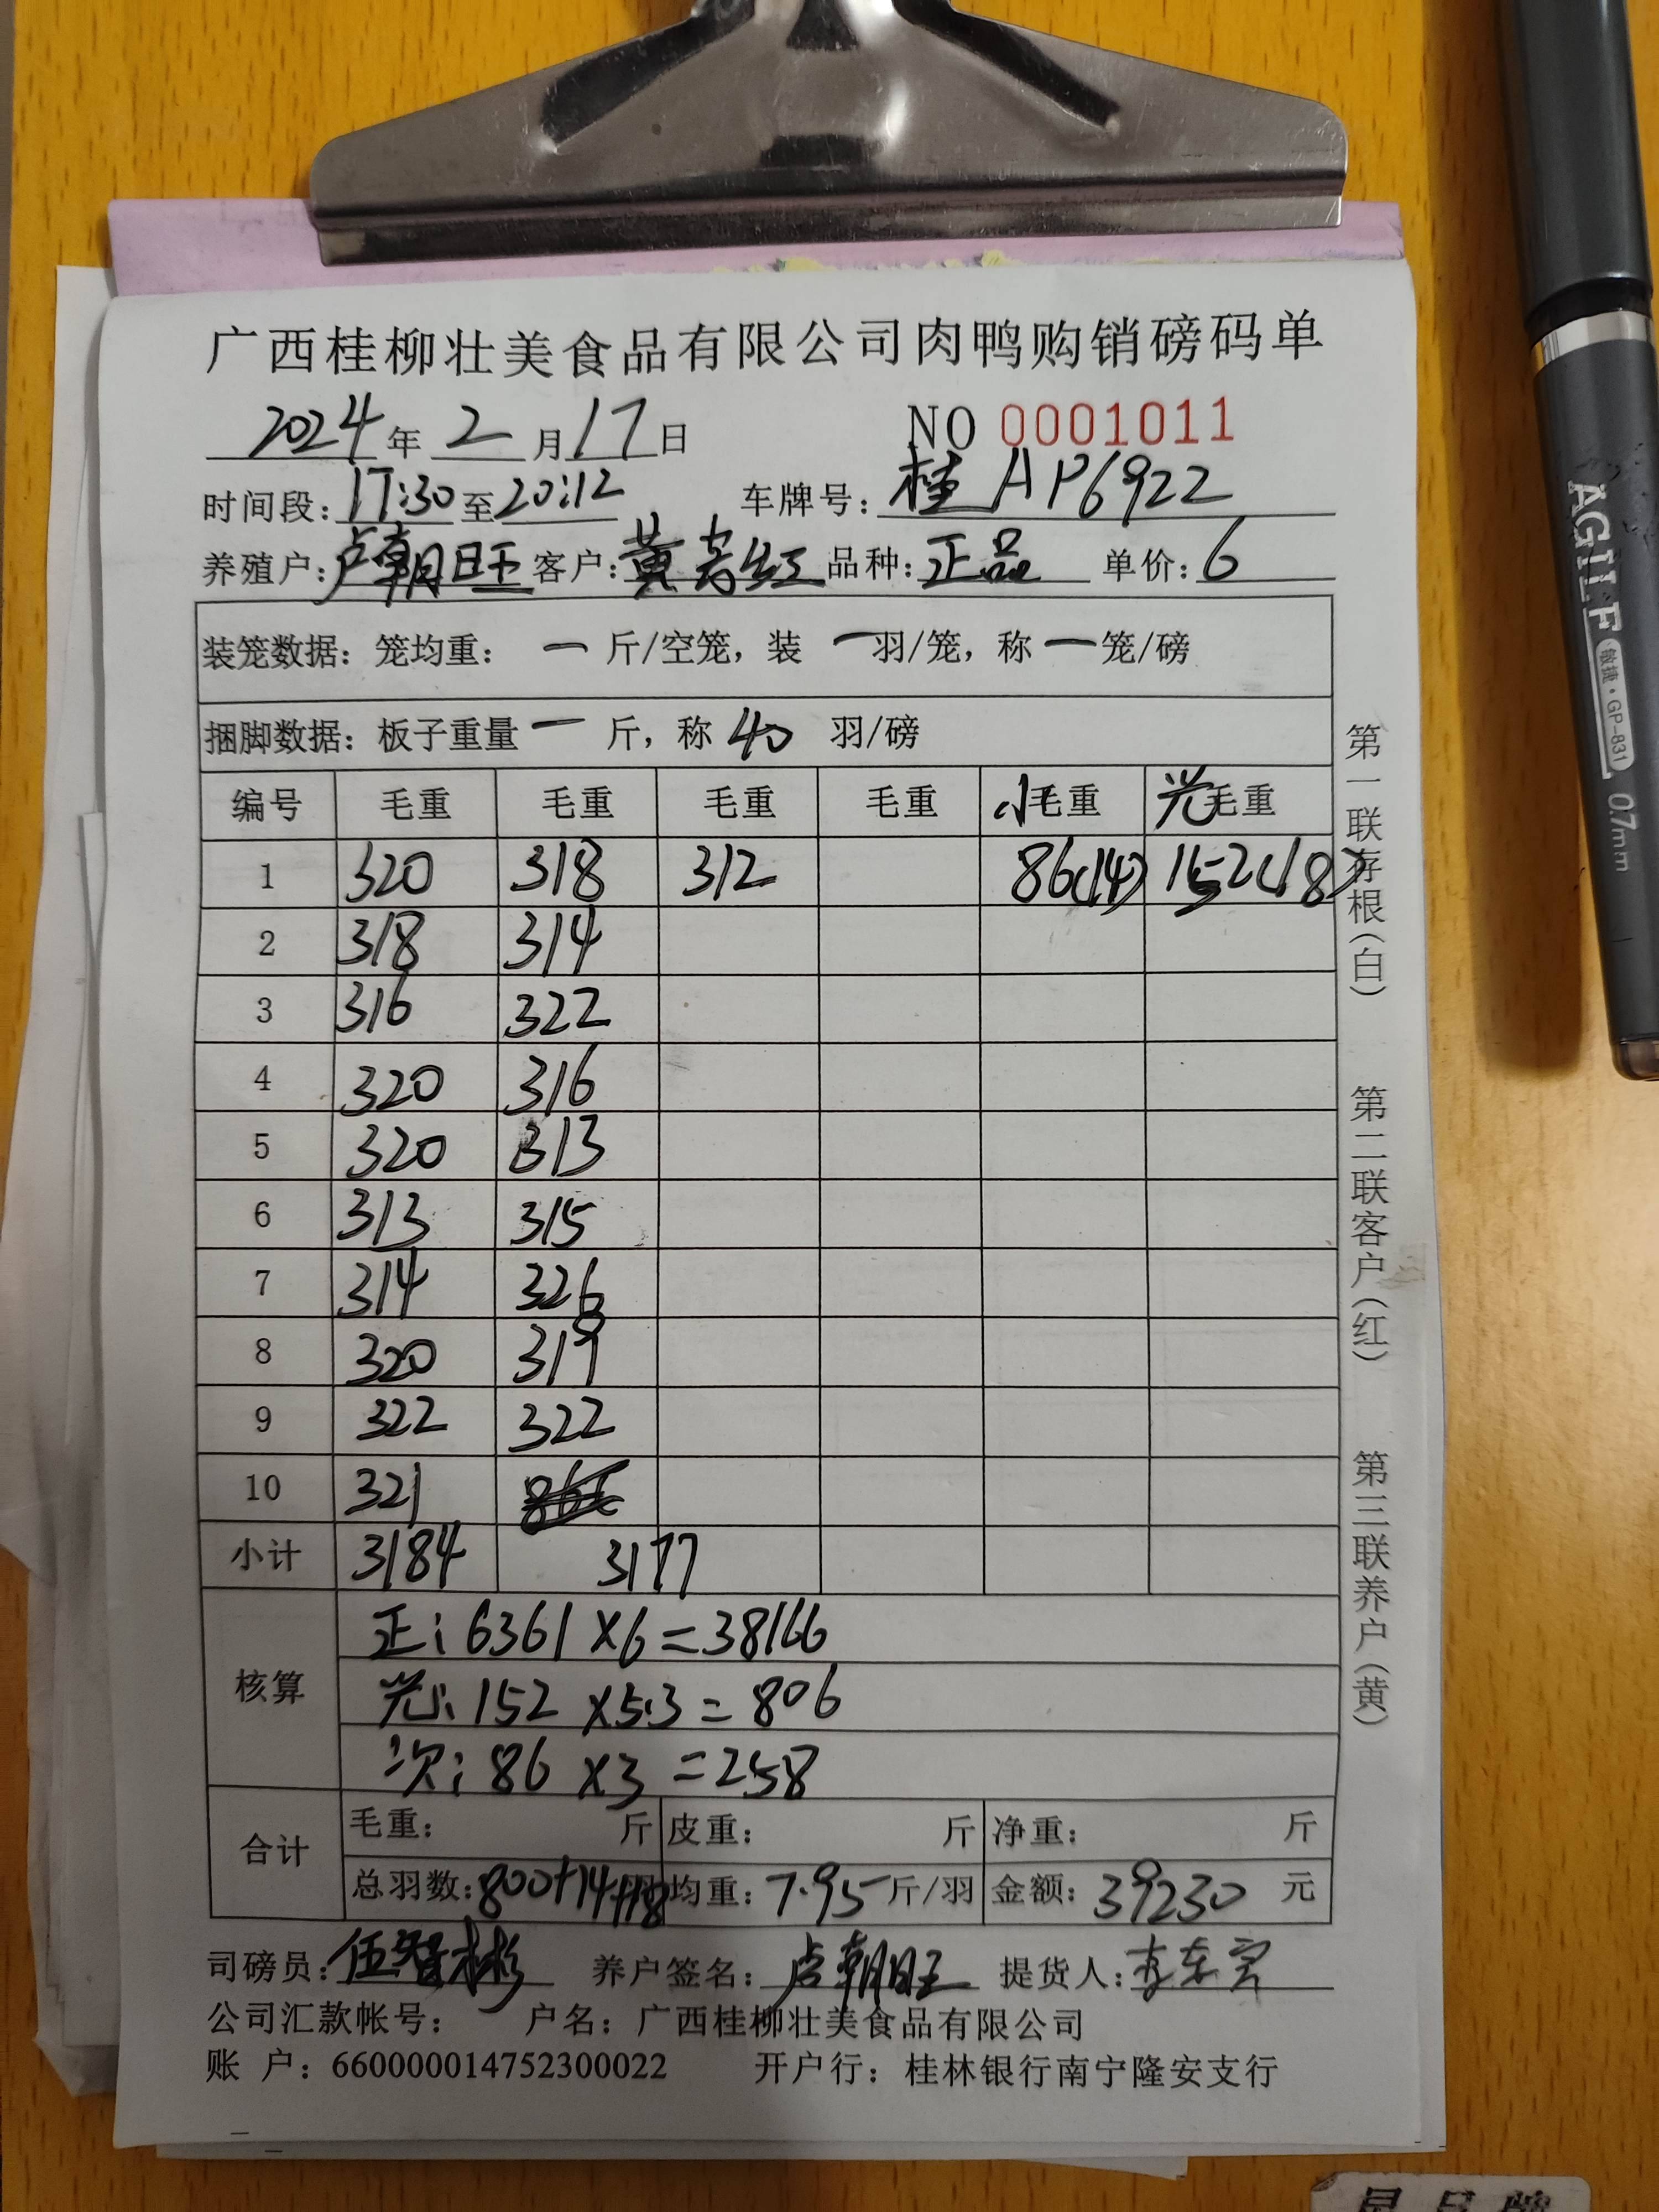 广西桂柳壮美食品有限公司肉鸭购销磅码单
2024年 2 月 17 日 NO 0001011
时间段：17:30至20:12 车牌号：桂AP6922
养殖户：卢朝旺 客户：黄 红 品种：正品 单价：6
装笼数据：笼均重：一 斤/空笼，装 一羽/笼，称 一笼/磅
捆脚数据：板子重量 一 斤，称 40 羽/磅
编号 毛重 毛重 毛重 毛重 小毛重 光毛重
1 320 318 312 86(14) 152(18)
2 318 314
3 316 322
4 320 316
5 320 313
6 313 315
7 314 326
8 320 319
9 322 322
10 321
小计 3184 3177
核算
正：6361×6=38166
光：152×5.3=806
次：86×3=258
合计
毛重： 斤 皮重： 斤 净重： 斤
总羽数：800+14+18羽 均重：7.95斤/羽 金额：39230 元
司磅员：伍智彬 养户签名：卢朝旺 提货人：李东
公司汇款帐号： 户名：广西桂柳壮美食品有限公司
账 户：660000014752300022 开户行：桂林银行南宁隆安支行
第一联存根（白）
第二联客户（红）
第三联养户（黄）
AGILE
敏捷·GP-831
0.7mm